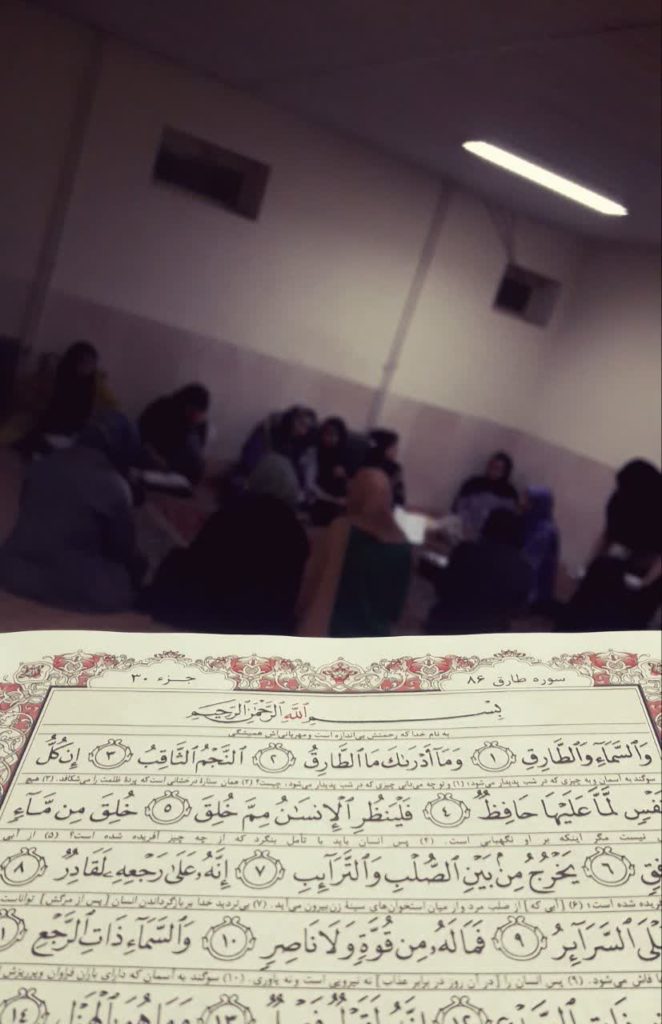 سوره طارق ۸۶
جزء ۳۰
بِسْمِ اللَّهِ الرَّحْمَٰنِ الرَّحِيمِ
به نام خدا که رحمتش بی‌اندازه است و مهربانی‌اش همیشگی
وَالسَّمَاءِ وَالطَّارِقِ ١ وَمَا أَدْرَىٰكَ مَا الطَّارِقُ ٢ النَّجْمُ الثَّاقِبُ ٣ إِنْ كُلُّ
سوگند به آسمان و به چیزی که در شب پدیدار می‌شود؛ (۱) و تو چه می‌دانی چیزی که در شب پدیدار می‌شود، چیست؟ (۲) همان ستارهٔ درخشانی است که پردهٔ ظلمت را می‌شکافد. (۳) هیچ
نَفْسٍ لَمَّا عَلَيْهَا حَافِظٌ ٤ فَلْيَنْظُرِ الْإِنْسَٰنُ مِمَّ خُلِقَ ٥ خُلِقَ مِنْ مَاءٍ
نیست مگر اینکه بر او نگهبانی است. (۴) پس انسان باید با تأمل بنگرد که از چه چیز آفریده شده است؟ (۵) از آبی
٦ يَخْرُجُ مِنْ بَيْنِ الصُّلْبِ وَالتَّرَائِبِ ٧ إِنَّهُ عَلَىٰ رَجْعِهِ لَقَادِرٌ ٨
شده است؛ (۶) [آبی که] از صلب مرد و از میان استخوان‌های سینهٔ زن بیرون می‌آید. (۷) بی‌تردید خدا بر بازگرداندن انسان [پس از مرگش] تواناست
السَّرَائِرُ ٩ فَمَا لَهُ مِنْ قُوَّةٍ وَلَا نَاصِرٍ ١٠ وَالسَّمَاءِ ذَاتِ الرَّجْعِ
فاش می‌شود. (۹) پس انسان را [در آن روز در برابر عذاب] نه نیرویی است و نه یاوری. (۱۰) سوگند به آسمان که دارای باران فراوان و پرریزش
١٢ إِنَّهُ لَقَوْلٌ فَصْلٌ ١٣ وَمَا هُوَ بِالْهَزْلِ ١٤